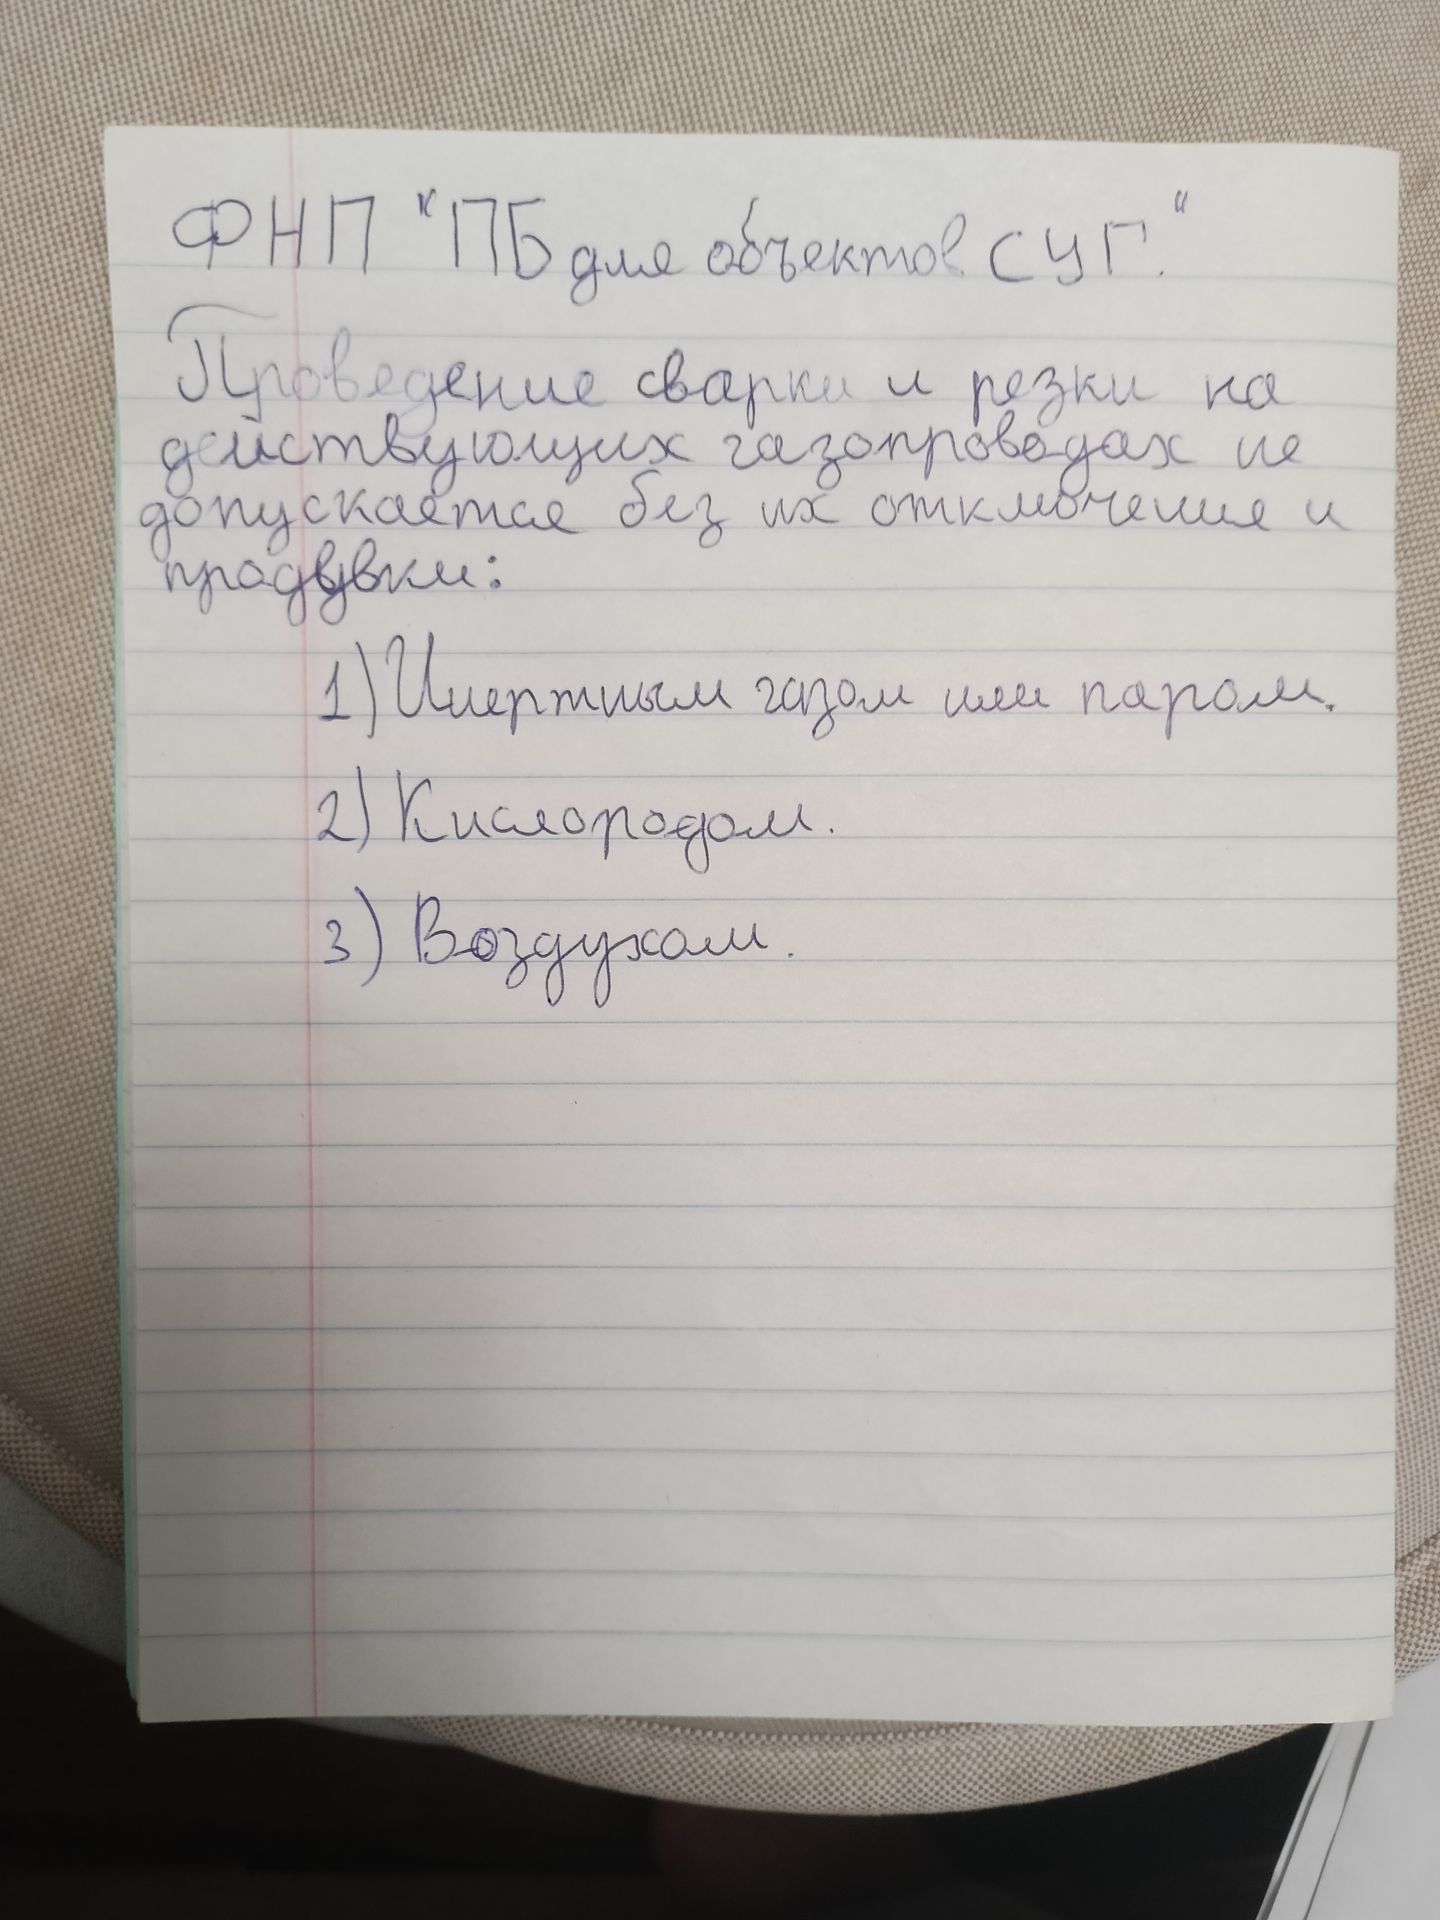 ФНП "ПБ для объектов СУГ."
Проведение сварки и резки на
действующих газопроводах не
допускается без их отключения и
продувки:
1) Инертным газом или паром.
2) Кислородом.
3) Воздухом.